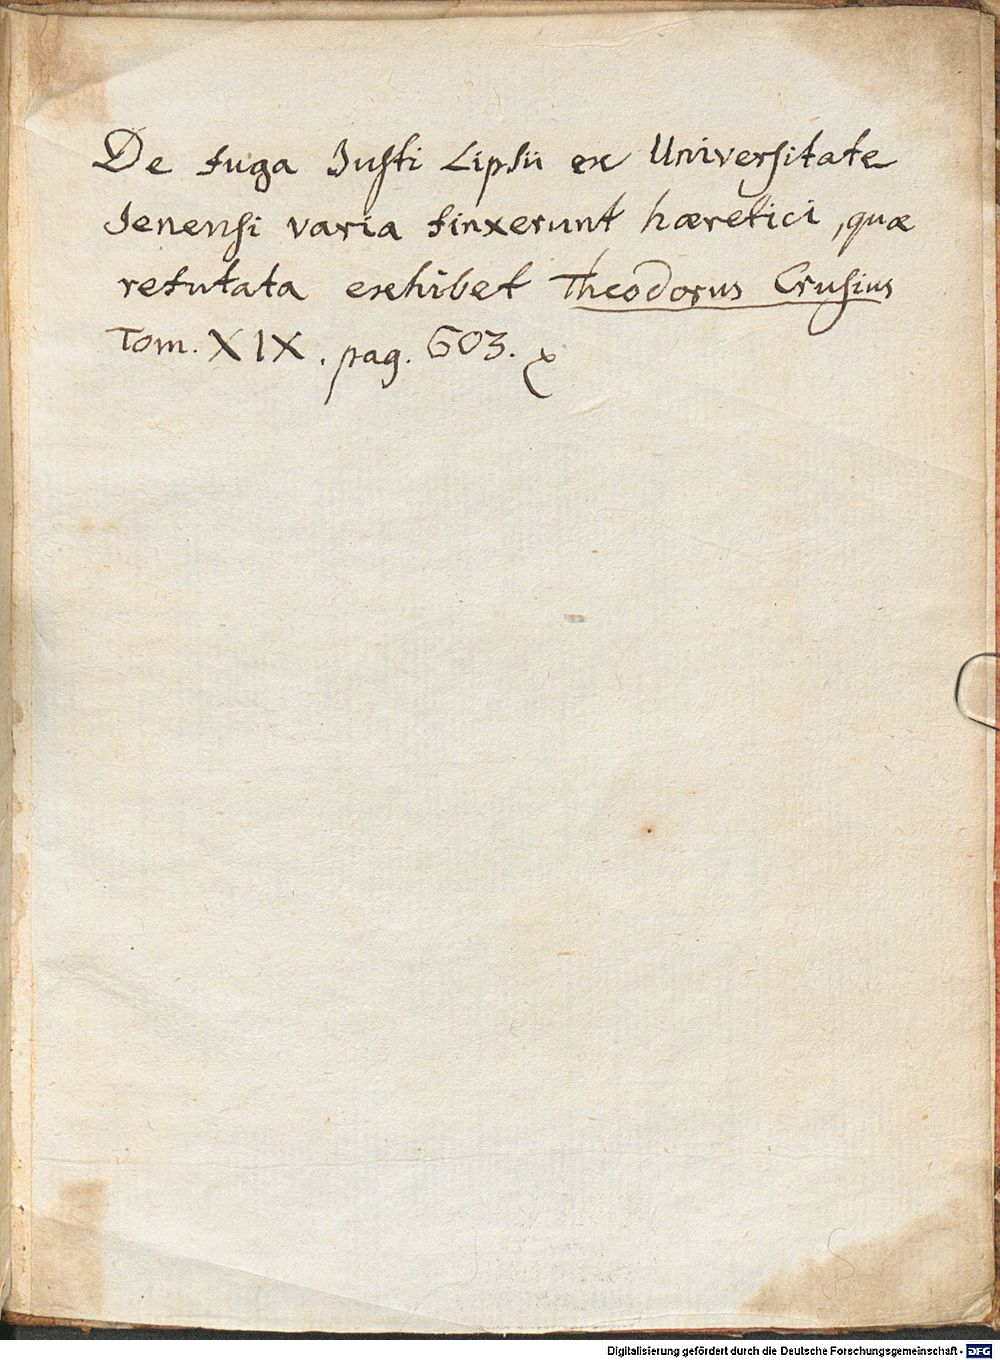 De fuga Justi Lipsii ex Universitate
Jenensi varia finxerunt hæretici, quæ
refutata exhibet Theodorus Crusius
Tom. XIX. pag. 603.
Digitalisierung gefördert durch die Deutsche Forschungsgemeinschaft - DFG